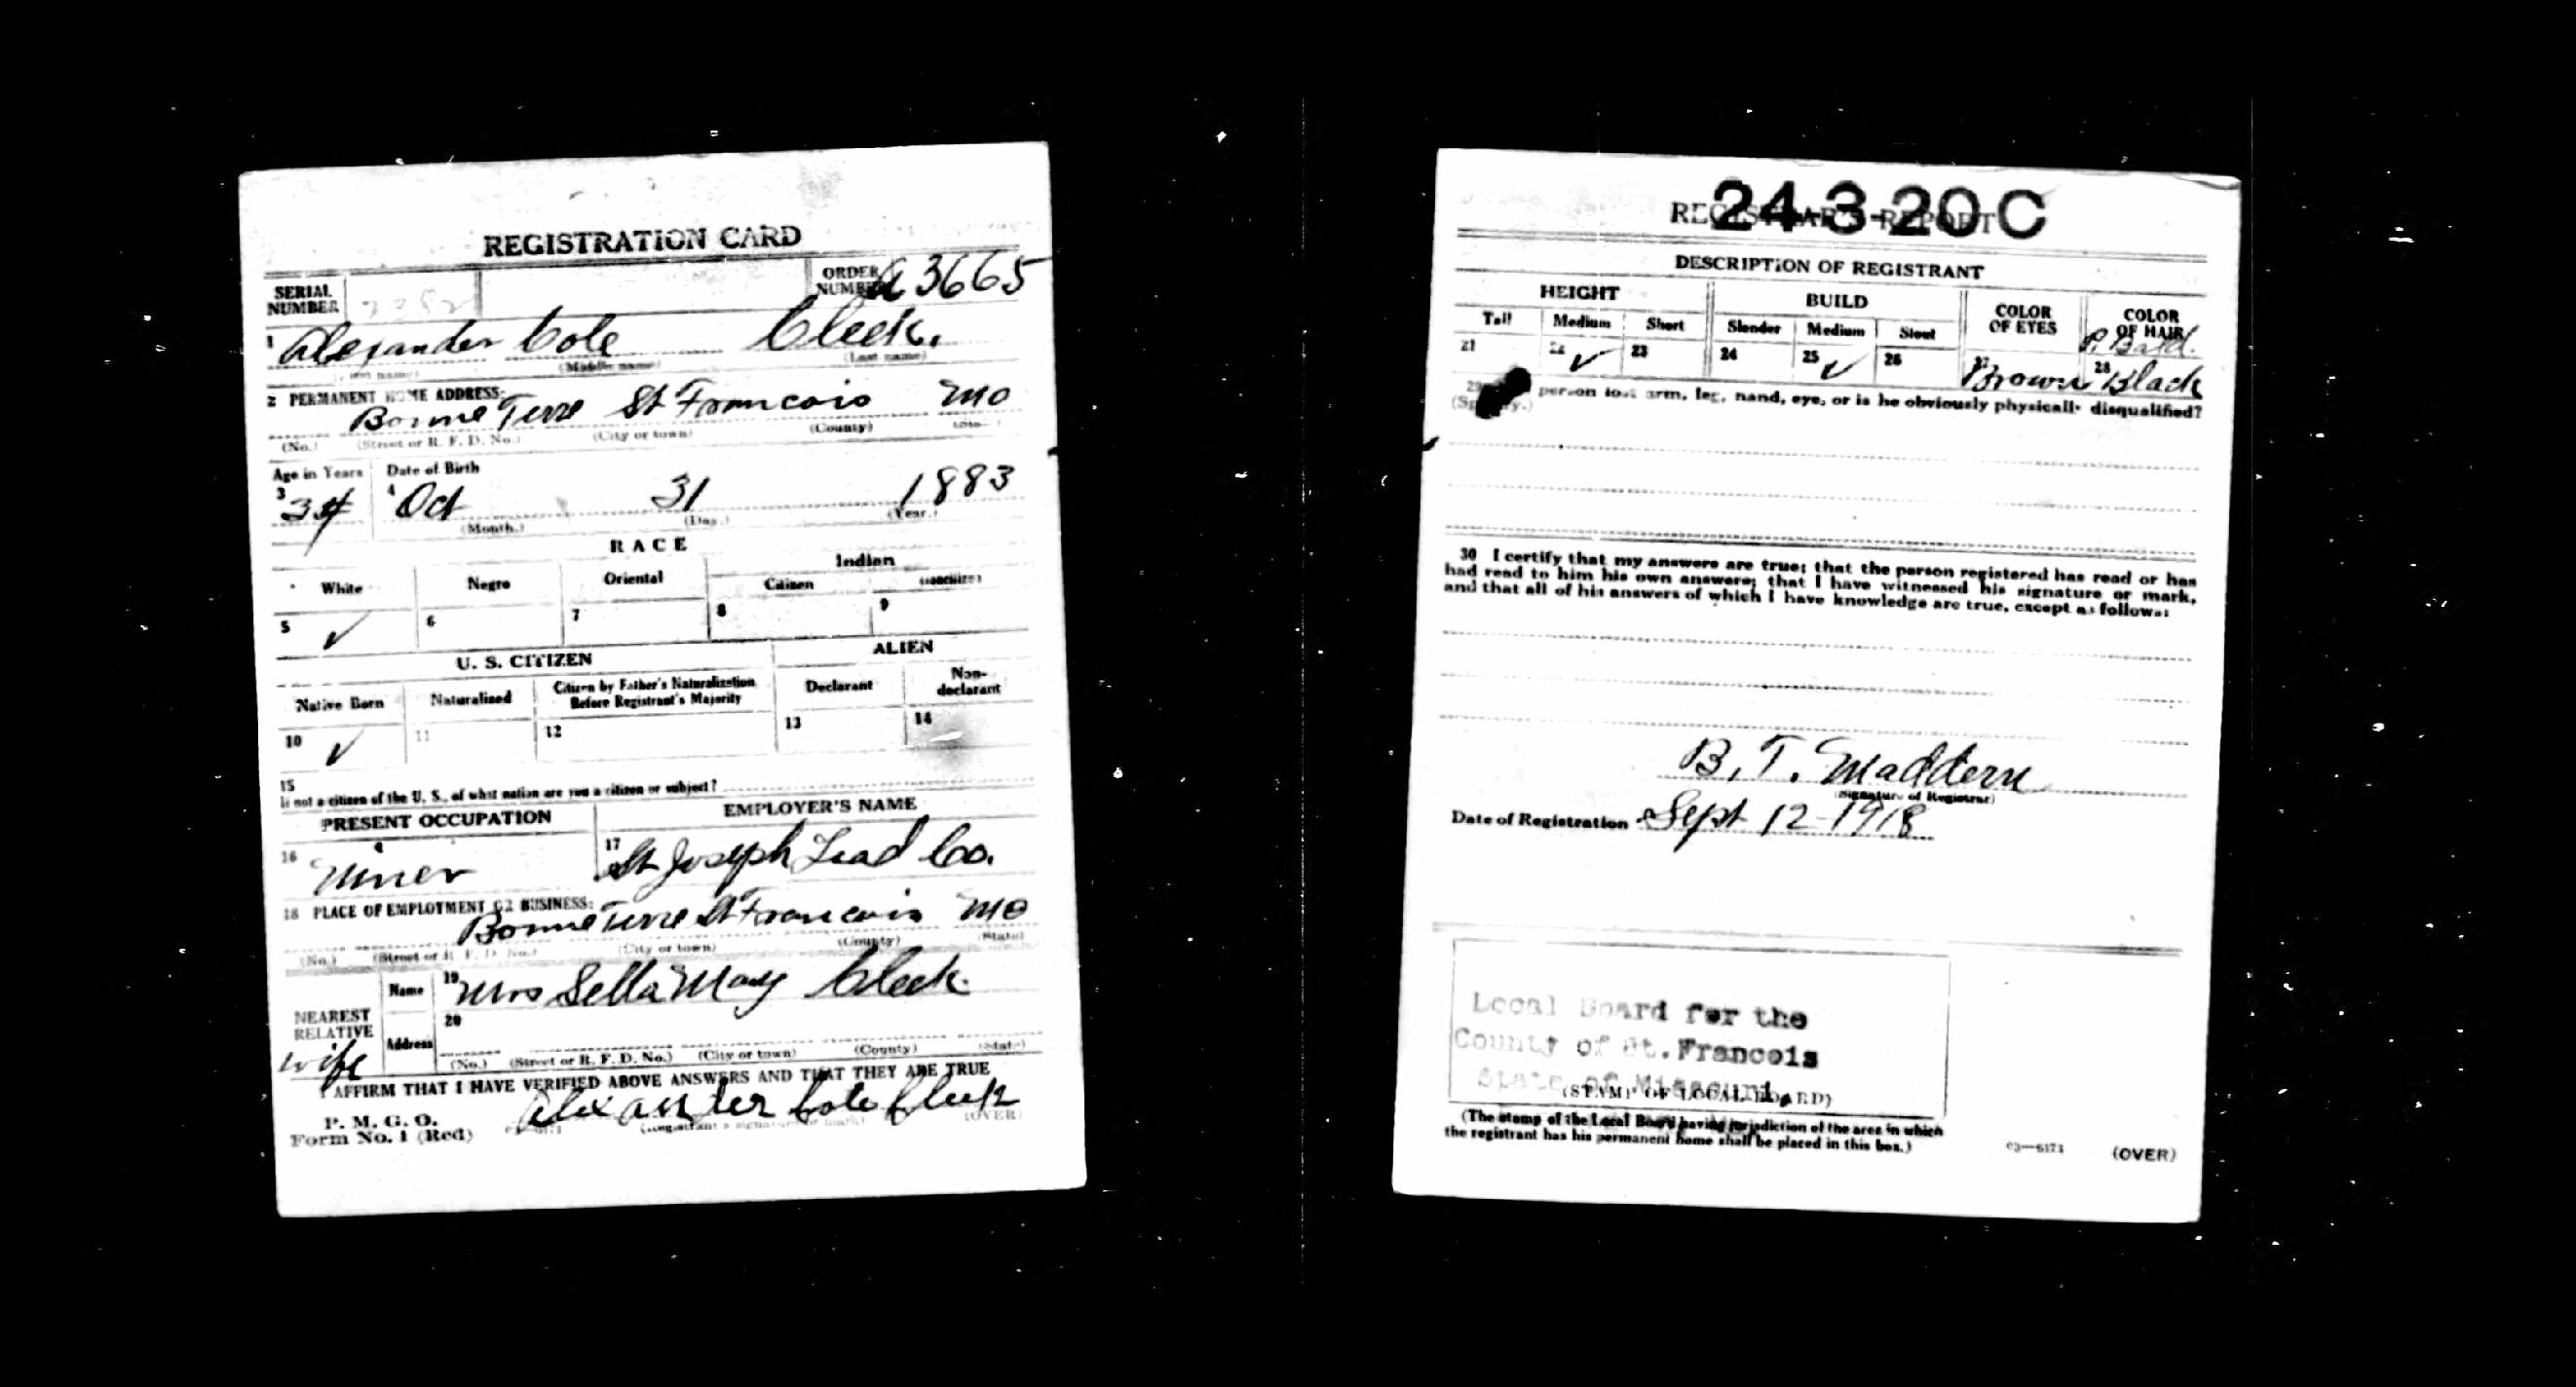 REGISTRATION CARD
SERIAL NUMBER
ORDER NUMBER A 3665
1 Alexander Cole Cleek.
(Middle name) (Last name)
2 PERMANENT HOME ADDRESS:
Bonne Terre St Francois Mo
(No.) (Street or R. F. D. No.) (City or town) (County)
Age in Years Date of Birth
3 34 4 Oct 31 1883
(Month.) (Day.) (Year.)
RACE
White Negro Oriental Indian
Citizen
5 ✓ 6 7 8 9
U. S. CITIZEN ALIEN
Native Born Naturalized Citizen by Father's Naturalization Before Registrant's Majority Declarant Non-declarant
10 ✓ 11 12 13 14
15
If not a citizen of the U. S., of what nation are you a citizen or subject?
PRESENT OCCUPATION EMPLOYER'S NAME
16 Miner 17 St Joseph Lead Co.
18 PLACE OF EMPLOYMENT OR BUSINESS:
Bonne Terre St Francois Mo
(No.) (Street or R. F. D. No.) (City or town) (County) (State)
NEAREST RELATIVE Name 19 Mrs Sella May Cleek.
wife Address 20
(No.) (Street or R. F. D. No.) (City or town) (County) (State)
I AFFIRM THAT I HAVE VERIFIED ABOVE ANSWERS AND THAT THEY ARE TRUE
P. M. G. O.
Form No. 1 (Red) Alexander Cole Cleek
(Registrant's signature or mark) (OVER)
24-3-20 C
REGISTRAR'S REPORT
DESCRIPTION OF REGISTRANT
HEIGHT BUILD COLOR OF EYES COLOR OF HAIR
Tall Medium Short Slender Medium Stout P. Bald.
21 22 ✓ 23 24 25 ✓ 26 27 Brown 28 Black
29 person lost arm, leg, hand, eye, or is he obviously physically disqualified?
(Specify.)
30 I certify that my answers are true; that the person registered has read or has
had read to him his own answers; that I have witnessed his signature or mark,
and that all of his answers of which I have knowledge are true, except as follows:
B. T. Maddern
(Signature of Registrar)
Date of Registration Sept 12 - 1918
Local Board for the
County of St. Francois
State of Missouri
(STAMP OF LOCAL BOARD)
(The stamp of the Local Board having jurisdiction of the area in which
the registrant has his permanent home shall be placed in this box.)
03—6171 (OVER)